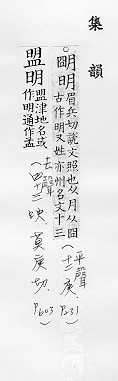 集韻
朙明眉兵切說文照也从月从囧
古作明又姓亦州名文十三
(平聲 十二庚. P231)
盟明盟津地名或
作明通作孟
(去聲 四十三映 莫庚切. P603)